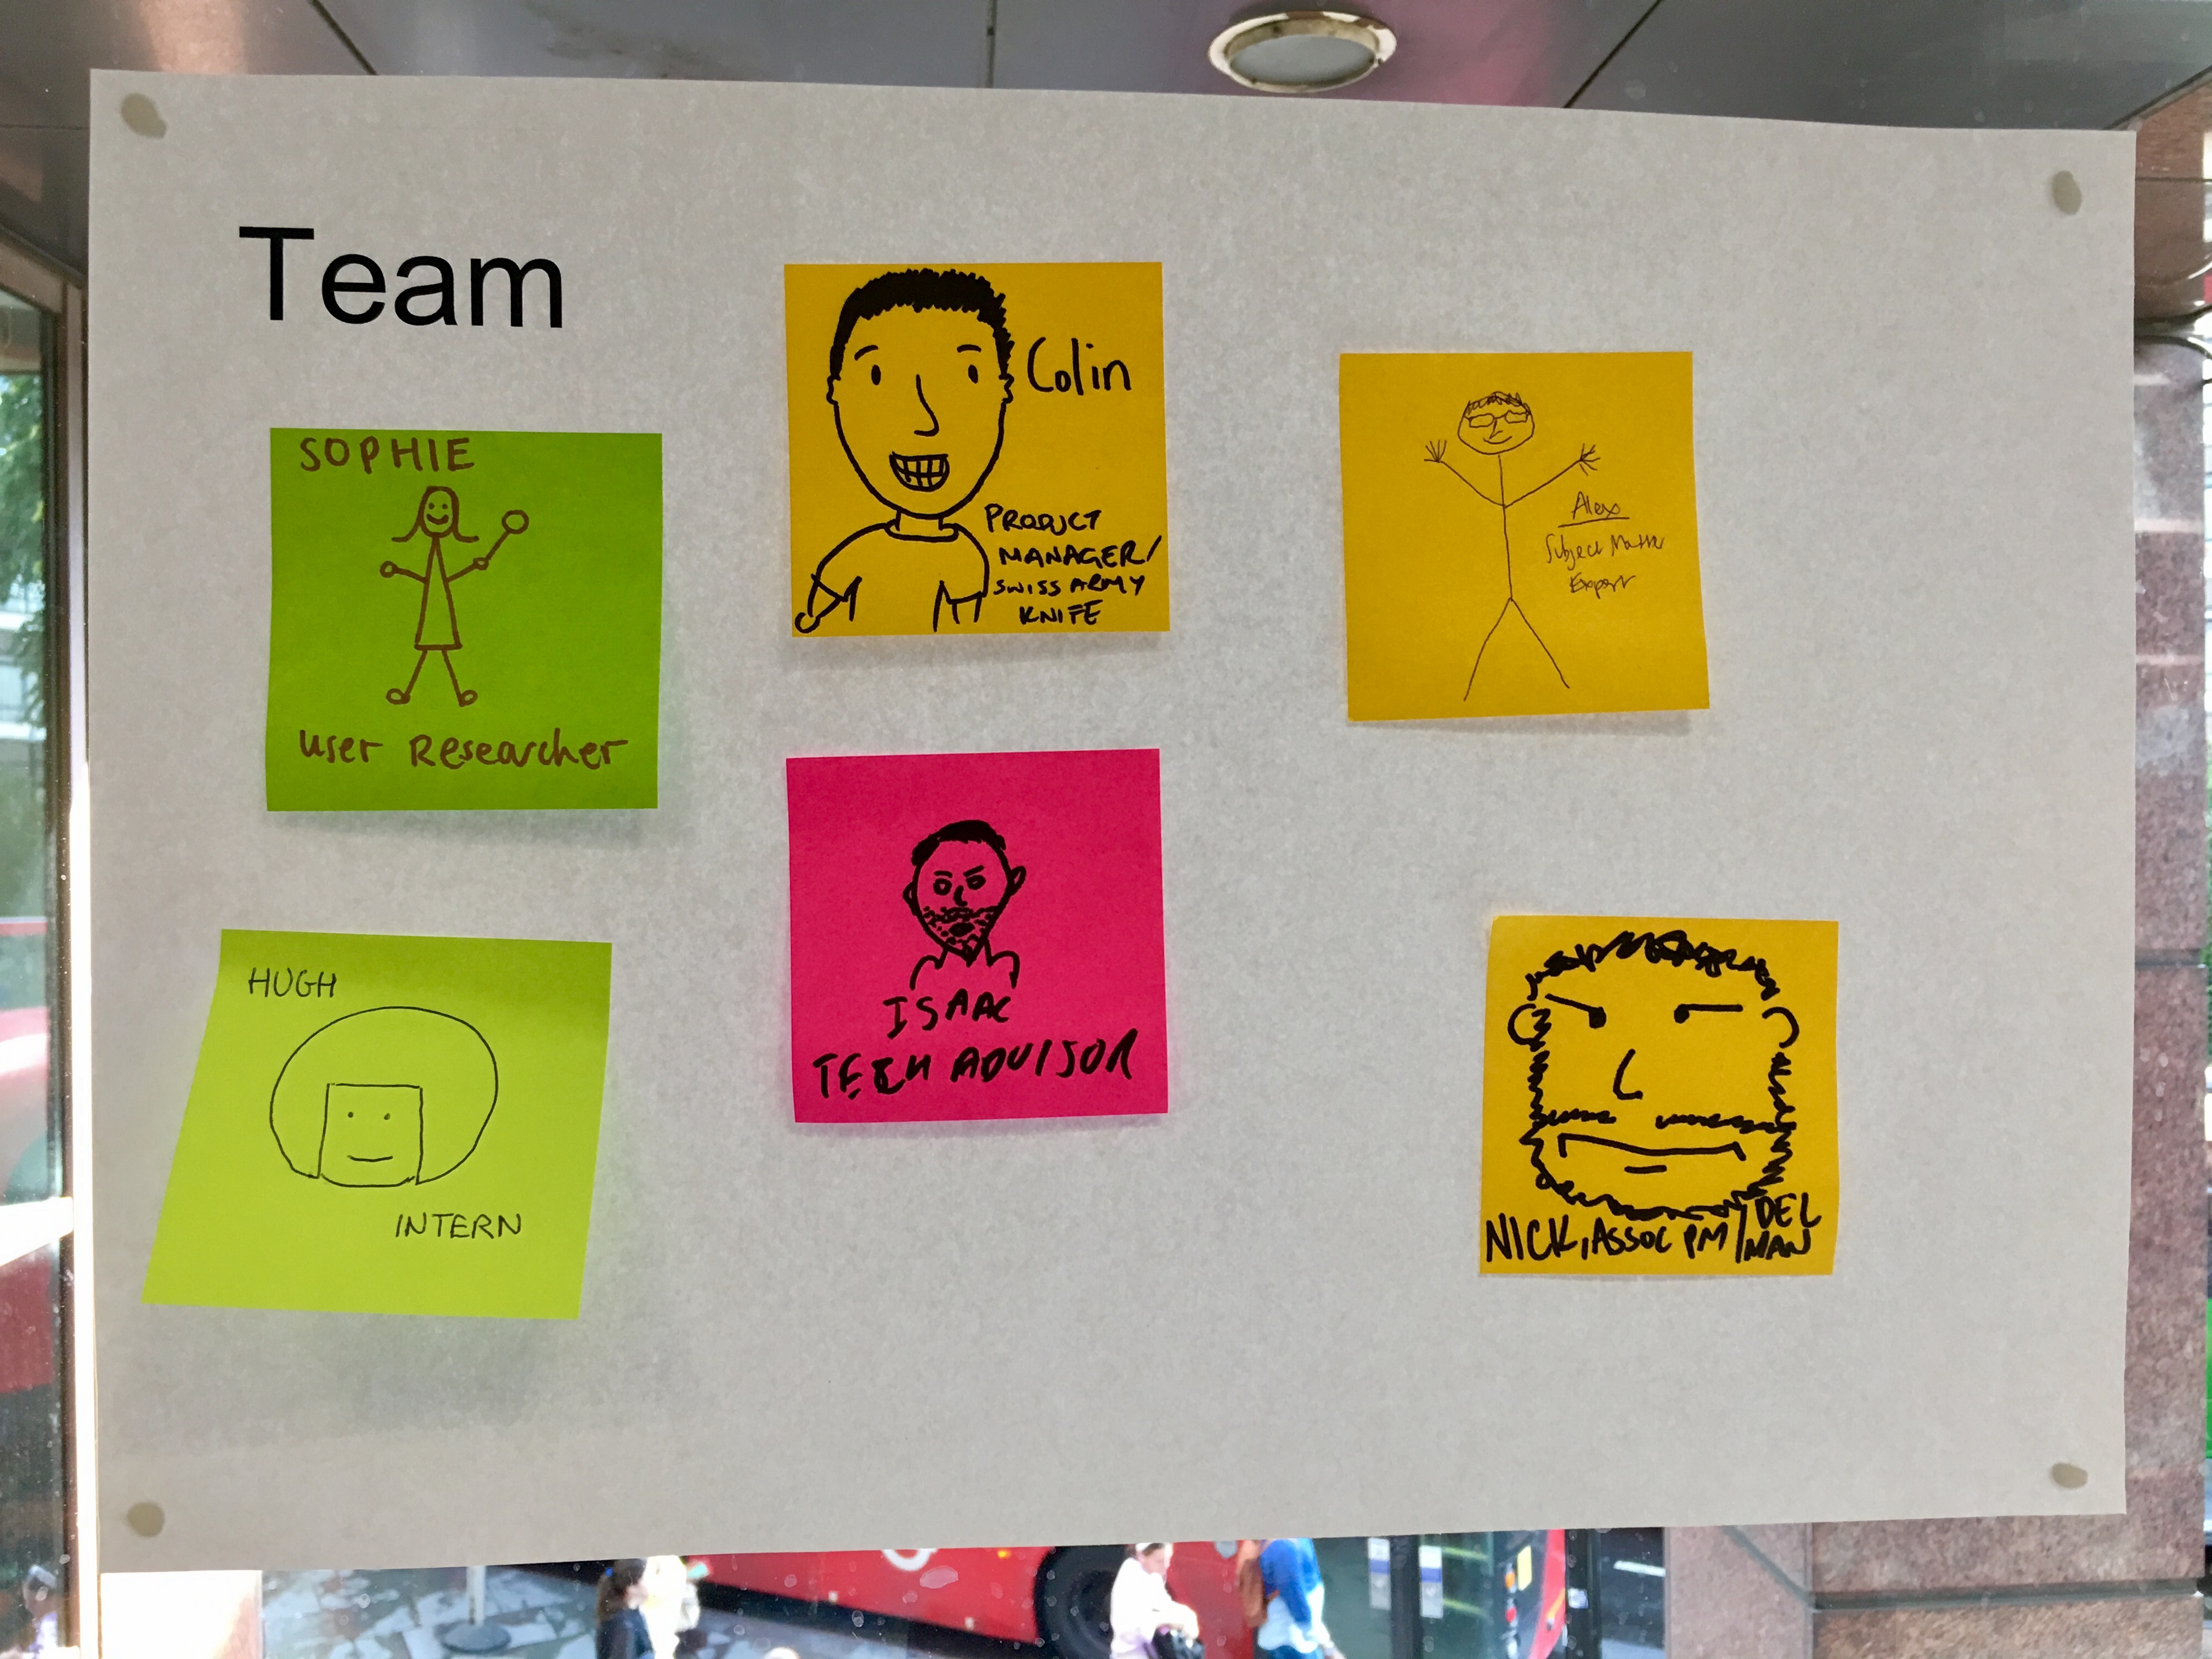 Team
SOPHIE
User Researcher
Colin
PRODUCT
MANAGER/
SWISS ARMY
KNIFE
Alex
Subject Matter
Expert
HUGH
INTERN
ISAAC
TECH ADVISOR
NICK, ASSOC PM/DEL
MAN